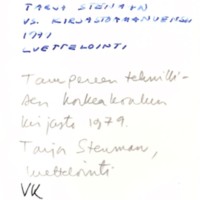 TARJA STENMAN
VS. KIRJASTONHO
1991
LUETTELOINTI
Tampereen teknilli-
sen korkeakoulun
kirjasto 1979.
Tarja Stenman,
luettelointi
VK